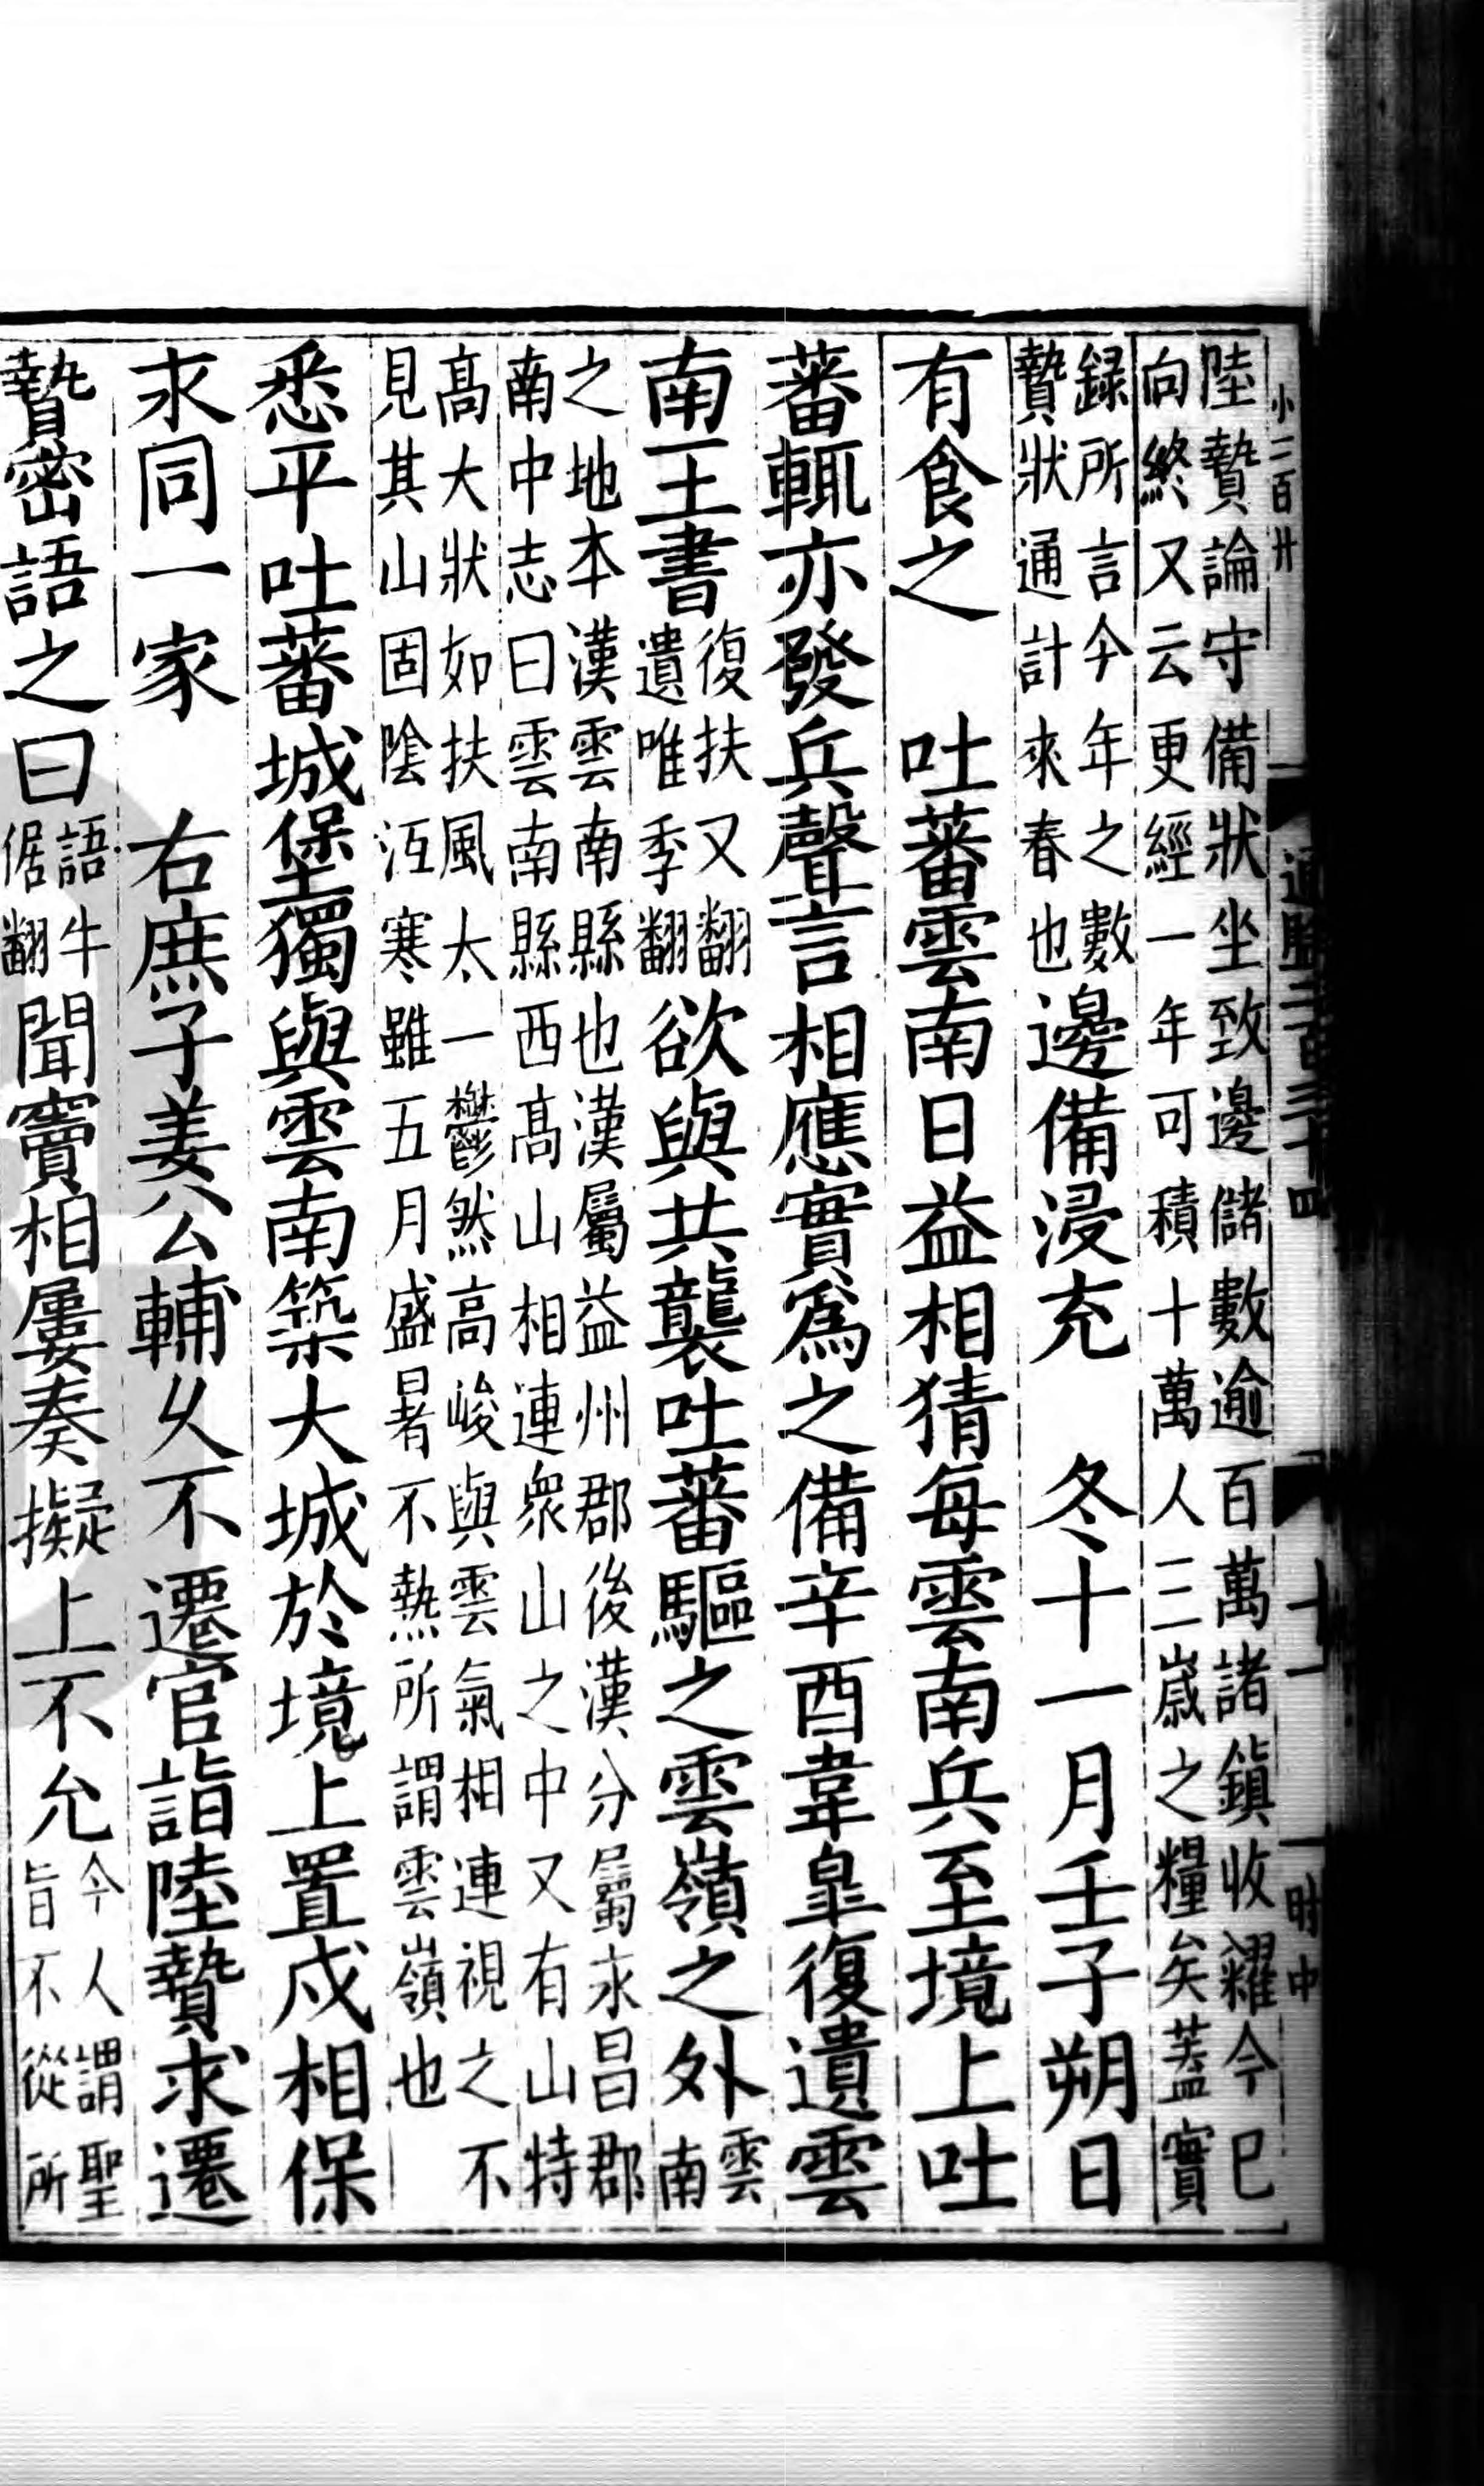 小二百廾
通鑑二百三十四
十一
時中
陸贄論守備狀坐致邊儲數逾百萬諸鎮收糴今已
向終又云更經一年可積十萬人三歲之糧矣蓋實
錄所言今年之數
贄狀通計來春也
邊備浸充　冬十一月壬子朔日
有食之　吐蕃雲南日益相猜每雲南兵至境上吐
蕃輒亦發兵聲言相應實爲之備辛酉韋皐復遺雲
南王書
復扶又翻
遺唯季翻
欲與共襲吐蕃驅之雲嶺之外
雲
南
之地本漢雲南縣也漢屬益州郡後漢分屬永昌郡
南中志曰雲南縣西高山相連衆山之中又有山特
高大狀如扶風太一鬱然高峻與雲氣相連視之不
見其山固陰沍寒雖五月盛暑不熱所謂雲嶺也
悉平吐蕃城堡獨與雲南築大城於境上置戍相保
求同一家　右庶子姜公輔久不遷官詣陸贄求遷
贄密語之曰
語牛
倨翻
聞竇相屢奏擬上不允
今人謂聖
旨不從所